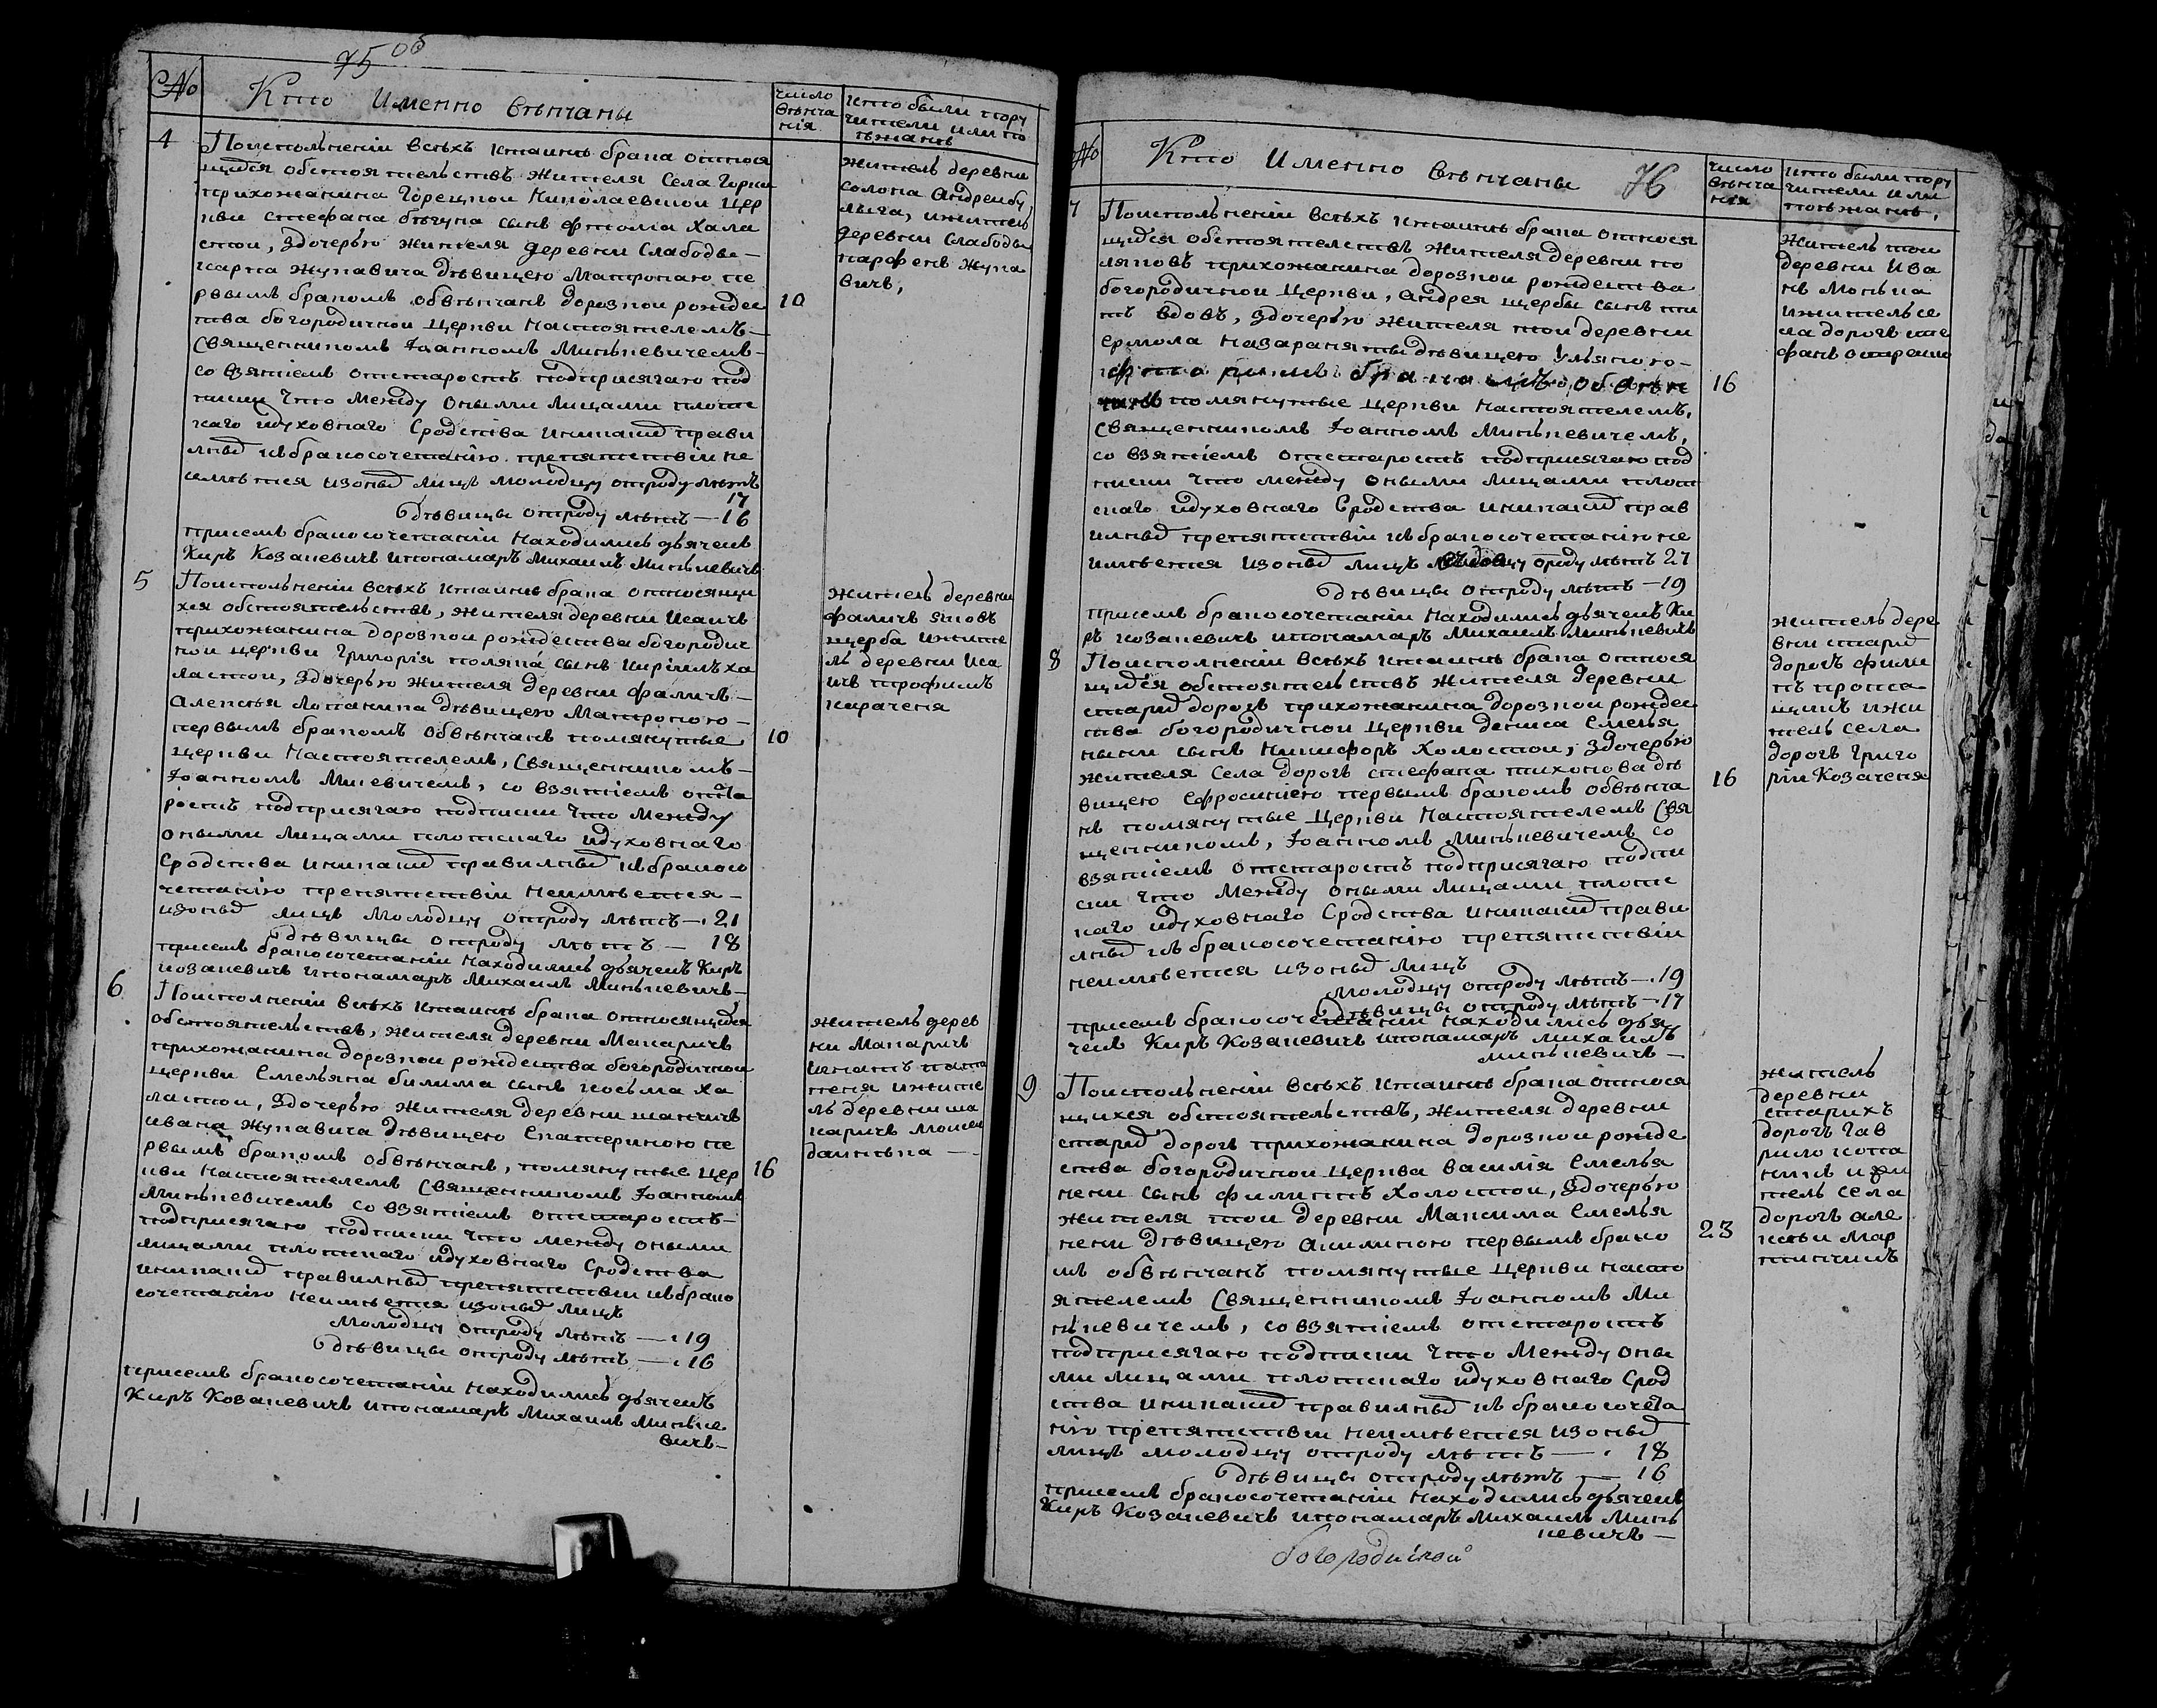 75 об
№
Кто Именно Вѣнчаны
число
Вѣнча
нія
кто были пору
чители или по
ѣжанѣ
4
Поисполненіи Всѣхъ ктаинѣ брака относя
щихся обстоятельствъ Жителя Села Горки
прихожанина Горецкои Николаевскои Цер
кви Стефана бѣгуна сынъ Фтома Хала
стои, Здочерью Жителя Деревни Слабоды
Карпа Жукавича Дѣвицею Матроною пе
рвымъ бракомъ обвѣнчанъ Дорозкои рождес
тва богородичнои Церкви Настоятелемъ
Священникомъ Іоанномъ Минькевичемъ
со взятіемъ отстаростъ подприсягаю под
писки Что Между оными Лицами плотс
каго идуховнаго Сродства иникаких прави
лных кбракосочетанію препятствіи не
имѣется изоных Лицъ Молодцу отроду лѣтъ
17
Дѣвицы отроду лѣтъ — 16
присемъ бракосочетаніи Находились дьячекъ
Киръ Козакевичъ ипономаръ Михаилъ Минькевичъ
10
Житель деревни
солона Андреибу
лыга, ижитель
деревни Слабоды
парфенъ Жука
вичъ,
5
Поисполненіи Всѣхъ ктаинѣ брака относящи
хся обстоятельствъ, Жителя деревни Исаичъ
прихожанина Дорозкои рождества богородич
нои церкви Григорія поляка сынъ Кирилъ ха
ластои, Здочерью Жителя Деревни фаличъ
Алексѣя Лопакина Дѣвицею Матроною
первымъ бракомъ обвѣнчанъ помянутые
церкви Настоятелемъ, Священникомъ
Іоанномъ Микевичемъ, со взятіемъ отста
ростъ подприсягаю подписки Что Между
оными Лицами плотскаго идуховнаго
Сродства иникаких правилных кбракосо
четанію препятствіи Неимѣется
изоных лицъ Молодцу отроду лѣтъ — 21
Дѣвицы отроду лѣтъ — 18
присемъ бракосочетаніи Находились дьячекъ Киръ
козакевичъ ипономаръ Михаилъ Минькевичъ
10
Житель деревни
фаличъ яковъ
щерба ижите
ль деревни Иса
ичъ трофимъ
кираченя
6
Поисполненіи Всѣхъ ктаинѣ брака относящихся
обстоятельствъ, Жителя деревни Макаричъ
прихожанина Дорозкои рождества богородичнои
церкви Емельяна билима сынъ косьма Ха
ластои, Здочерью Жителя Деревни шапчичъ
ивана Жукавича Дѣвицею Екатериною пе
рвымъ бракомъ обвѣнчанъ, помянутые цер
кви Настоятелемъ Священникомъ Іоанномъ
Минькевичемъ со взятіемъ отстаростъ
подприсягаю подписки Что между оными
лицами плотскаго идуховнаго Сродства
иникаких правилных препятствіи кбрако
сочетанію Неимѣется изоных Лицъ
Молодцу отроду лѣтъ — 19
Дѣвицы отроду лѣтъ — 16
присемъ бракосочетаніи Находились дьячекъ
Киръ Козакевичъ ипономаръ Михаилъ Минке
вичъ
16
Житель дерев
ни Макаричъ
теня ижите
ль деревни ма
каричъ Моисеи
7
№
Кто Именно Вѣнчаны
76
число
Вѣнча
нія
кто были пору
чители или
поѣжанѣ,
Поисполненіи Всѣхъ ктаинѣ брака относя
щихся обстоятельствъ Жителя деревни по
ляковъ прихожанина дорозкои рождества
богородичнои Церкви, Андрея щербы сынъ ти
тъ вдовъ, Здочерью Жителя тои деревни
ермола назараняты Дѣвицею Ульяною
помянутые Церкви Настоятелемъ,
Священникомъ Іоанномъ Минькевичемъ,
со взятіемъ отстаростъ подприсягаю под
писки Что между оными Лицами плотс
скаго идуховнаго Сродства иникаких прав
илных препятствіи кбракосочетанію не
имѣется изоных Лицъ вдовцу ороду лѣтъ 27
Дѣвицы отроду лѣтъ — 19
присемъ бракосочетаніи Находились дьячекъ Ки
ръ козакевичъ ипономаръ Михаилъ Минькевичъ
16
Житель тои
деревни Ива
нъ Монька
ижитель се
ла дорогъ сте
фанъ
8
Поисполненіи Всѣхъ ктаинѣ брака относя
щихся обстоятельствъ Жителя деревни
старых дорогъ прихожанина Дорозкои рождес
тва богородичнои Церкви дениса Емелья
ныки сынъ Никифоръ Холостои, Здочерью
Жителя Села дорогъ стефана тихонова дѣ
вицею Ефросиніею первымъ бракомъ обвѣнча
нъ помянутые Церкви Настоятелемъ Свя
щенникомъ, Іоанномъ Минькевичемъ со
взятіемъ отстаростъ подприсягаю подпи
ски Что Между оными Лицами плотс
каго идуховнаго Сродства иникаких прави
лных кбракосочетанію препятствіи
неимѣется изоных Лицъ
Молодцу отроду лѣтъ — 19
Дѣвицы отроду лѣтъ — 17
присемъ бракосочетаніи Находились дья
чекъ Киръ Козакевичъ ипономаръ Михаилъ
Минькевичъ —
16
Житель дере
вни старых
дорогъ фили
пъ прока
щикъ ижи
тель села
дорогъ Григо
ріи Козаченя
9
Поисполненіи Всѣхъ ктаинѣ брака относя
щихся обстоятельствъ, Жителя деревни
старых дорогъ прихожанина дорознои рожде
ства богородичнои Церква Василія Емелья
нени сынъ филиппъ Холостои, Здочерью
Жителя тои деревни Максима Емелья
нени Дѣвицею Акилиною первымъ брако
мъ обвѣнчанъ помянутые Церкви насто
ятелемъ Священникомъ Іоанномъ Ми
нькевичемъ, совзятіемъ отстаростъ
подприсягаю подписки Что Между оны
ми лицами плотскаго идуховнаго Срод
ства иникаких правилных кбракосочета
нію препятствіи Неимѣется изоных
лицъ Молодцу отроду лѣтъ — 18
Дѣвицы отроду лѣтъ — 16
присемъ бракосочетаніи Находились дьячекъ
Киръ Козакевичъ ипономаръ Михаилъ Минь
кевичъ —
23
Житель
деревни
старихъ
дорогъ гав
рило копа
никъ ижи
тель села
дорогъ але
ксѣи Мар
тинчикъ
богородиской